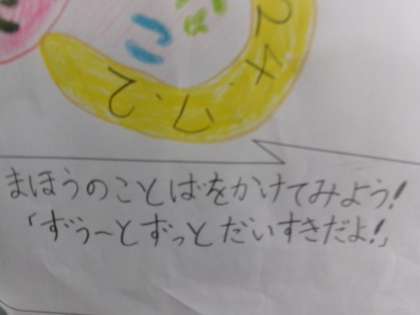 24.7.2
まほうのことばをかけてみよう!
「ずぅ〜とずっとだいすきだよ!」